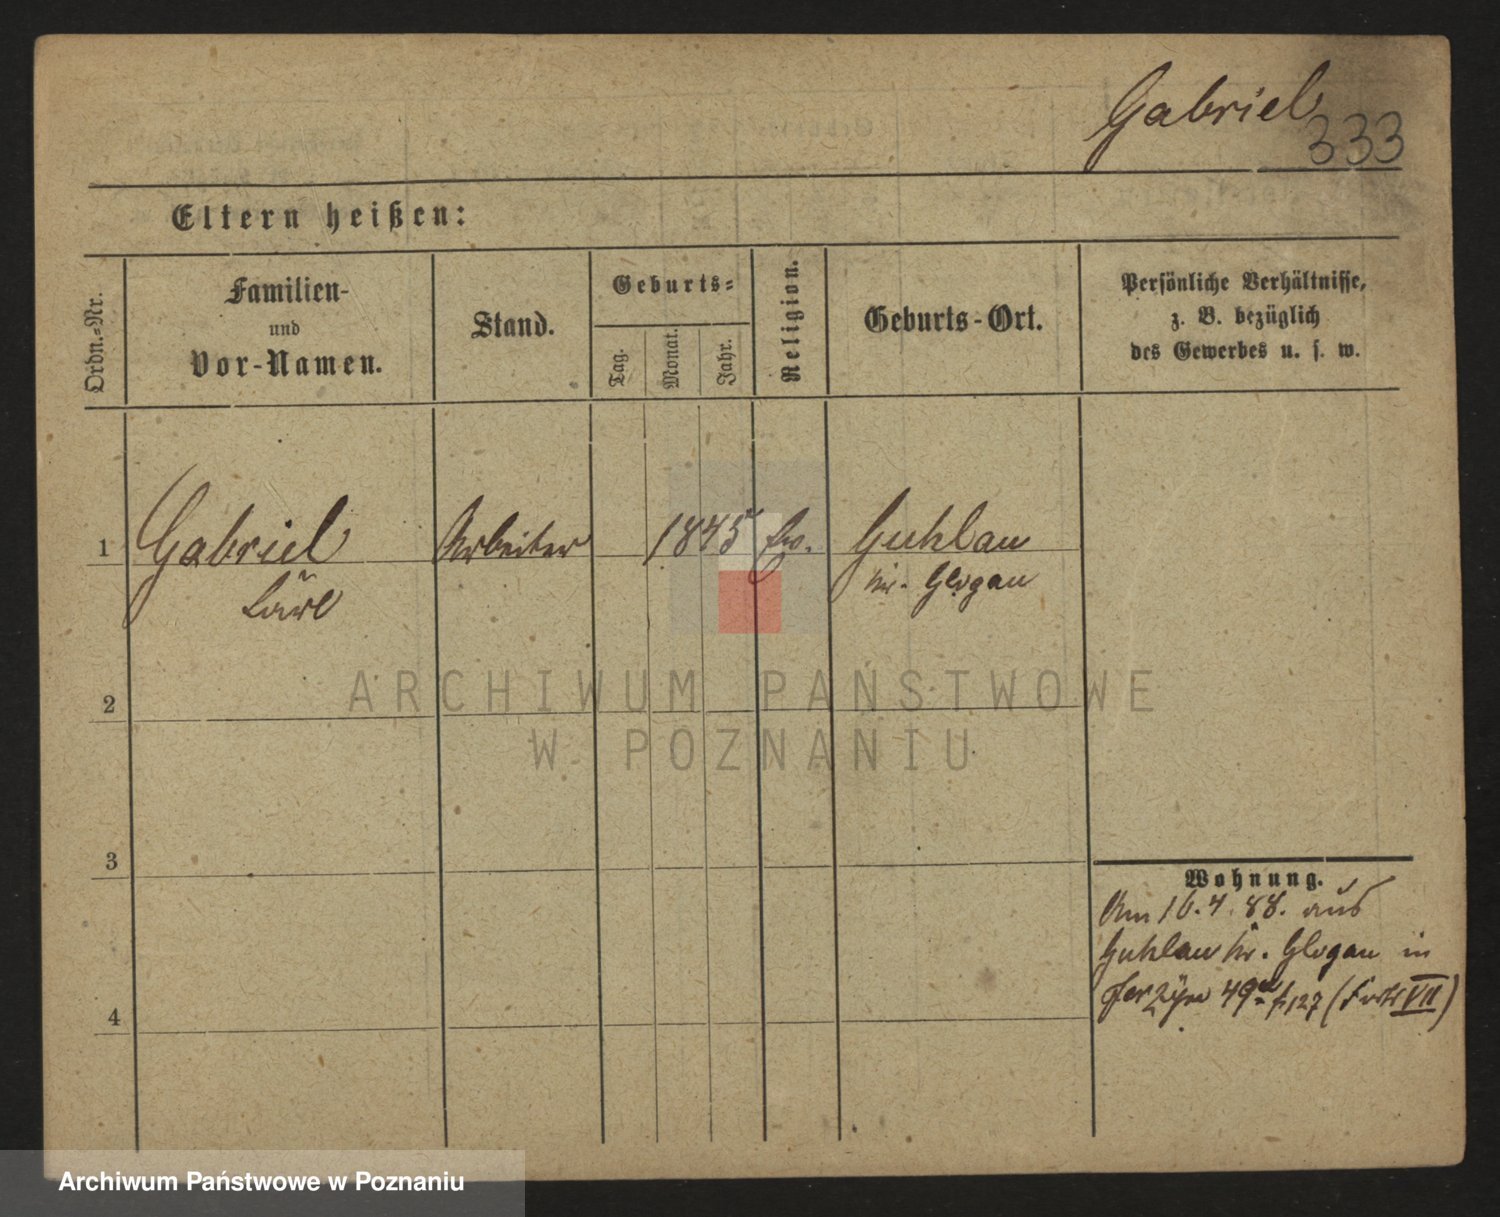 Gabriel
333
Eltern heißen:
Ordn.-Nr.
Familien-
und
Vor-Namen.
Stand.
Geburts-
Tag.
Monat.
Jahr.
Religion.
Geburts-Ort.
Persönliche Verhältnisse,
z. B. bezüglich
des Gewerbes u. s. w.
1 Gabriel Arbeiter 1845 Ev. Guhlau
Carl Kr. Glogau
2
3
4
Wohnung.
Am 16.4.88. aus
Guhlau Kr. Glogau in
49 127 (Fort VII)
ARCHIWUM PAŃSTWOWE
W POZNANIU
Archiwum Państwowe w Poznaniu